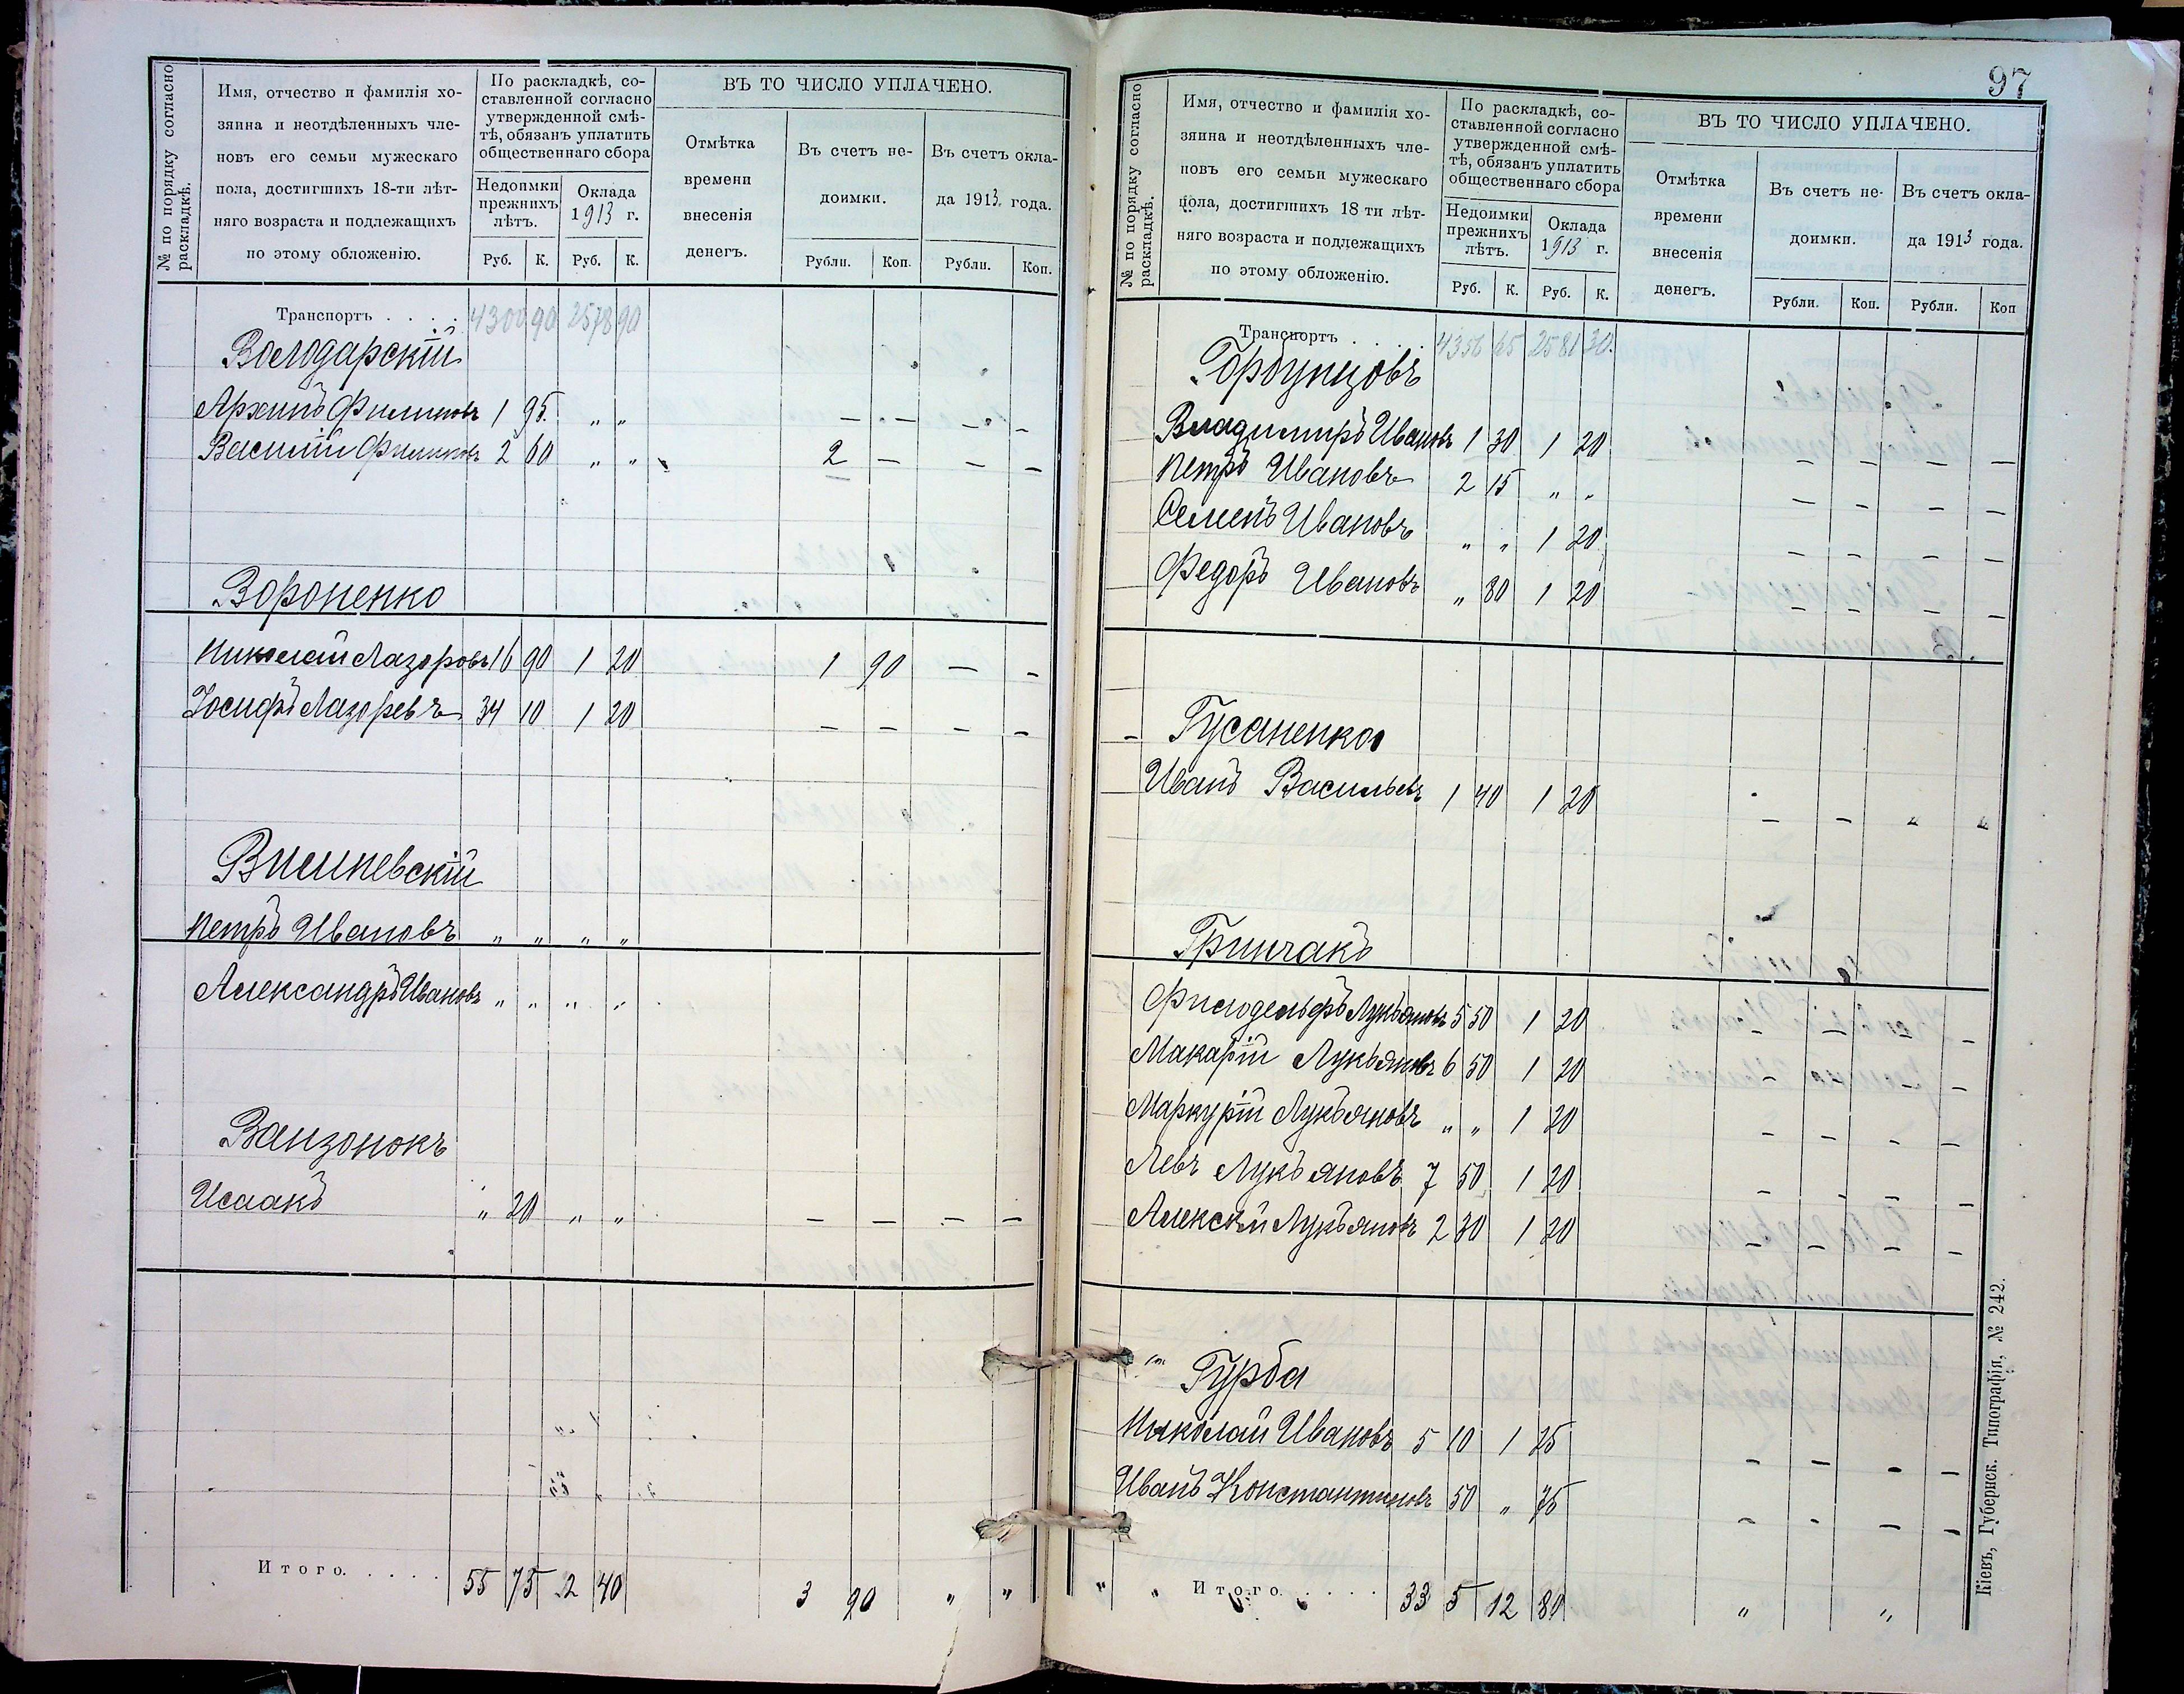 № по порядку согласно раскладкѣ.
Имя, отчество и фамилія хо-
зяина и неотдѣленныхъ чле-
новъ его семьи мужескаго
пола, достигшихъ 18-ти лѣт-
няго возраста и подлежащихъ
по этому обложенію.
По раскладкѣ, со-
ставленной согласно
утвержденной смѣ-
тѣ, обязанъ уплатить
общественнаго сбора
Недоимки прежнихъ лѣтъ.
Оклада 1913 г.
Руб. К. Руб. К.
ВЪ ТО ЧИСЛО УПЛАЧЕНО.
Отмѣтка времени внесенія денегъ.
Въ счетъ не-
доимки.
Въ счетъ окла-
да 1913 года.
Рубли. Коп. Рубли. Коп.
Транспортъ . . . . 4300 90 2578 90
Володарскій
Архипъ Филиповъ 1 95 „ „ — — — —
Василій Филиповъ 2 60 „ „ 2 — — —
Вороненко
Николай Лазоровъ 16 90 1 20 1 90 — —
Іосифъ Лазоревъ 34 10 1 20 — — — —
Вишневскій
Петръ Ивановъ „ „ „ „
Александръ Ивановъ „ „ „ „
Ванзонокъ
Исаакъ „ 20 „ „ — — — —
Итого. . . . . 55 75 2 40 3 90 „ „
97
№ по порядку согласно раскладкѣ.
Имя, отчество и фамилія хо-
зяина и неотдѣленныхъ чле-
новъ его семьи мужескаго
пола, достигшихъ 18 ти лѣт-
няго возраста и подлежащихъ
по этому обложенію.
По раскладкѣ, со-
ставленной согласно
утвержденной смѣ-
тѣ, обязанъ уплатить
общественнаго сбора
Недоимки прежнихъ лѣтъ.
Оклада 1913 г.
Руб. К. Руб. К.
ВЪ ТО ЧИСЛО УПЛАЧЕНО.
Отмѣтка времени внесенія денегъ.
Въ счетъ не-
доимки.
Въ счетъ окла-
да 1913 года.
Рубли. Коп. Рубли. Коп
Транспортъ . . . . 4356 65 2581 30
Горбунцовъ
Владимиръ Ивановъ 1 30 1 20 — — — —
Петръ Ивановъ 2 15 „ „ — — — —
Семенъ Ивановъ „ „ 1 20 — — — —
Федоръ Ивановъ „ 80 1 20 — — — —
Гусаненко
Иванъ Васильевъ 1 40 1 20 — — „ „
Гринчакъ
Филодельфъ Лукъяновъ 5 50 1 20 — — — —
Макарій Лукъяновъ 6 50 1 20 — — — —
Маркурій Лукъяновъ „ „ 1 20 — — — —
Левъ Лукъяновъ 7 50 1 20 — — — —
Алексѣй Лукъяновъ 2 30 1 20 — — — —
Гурба
Николай Ивановъ 5 10 1 25 — — — —
Иванъ Константиновъ 50 „ 75 — — — —
Итого. . . . . 33 5 12 80 „ „
Кіевъ, Губернск. Типографія, № 242.